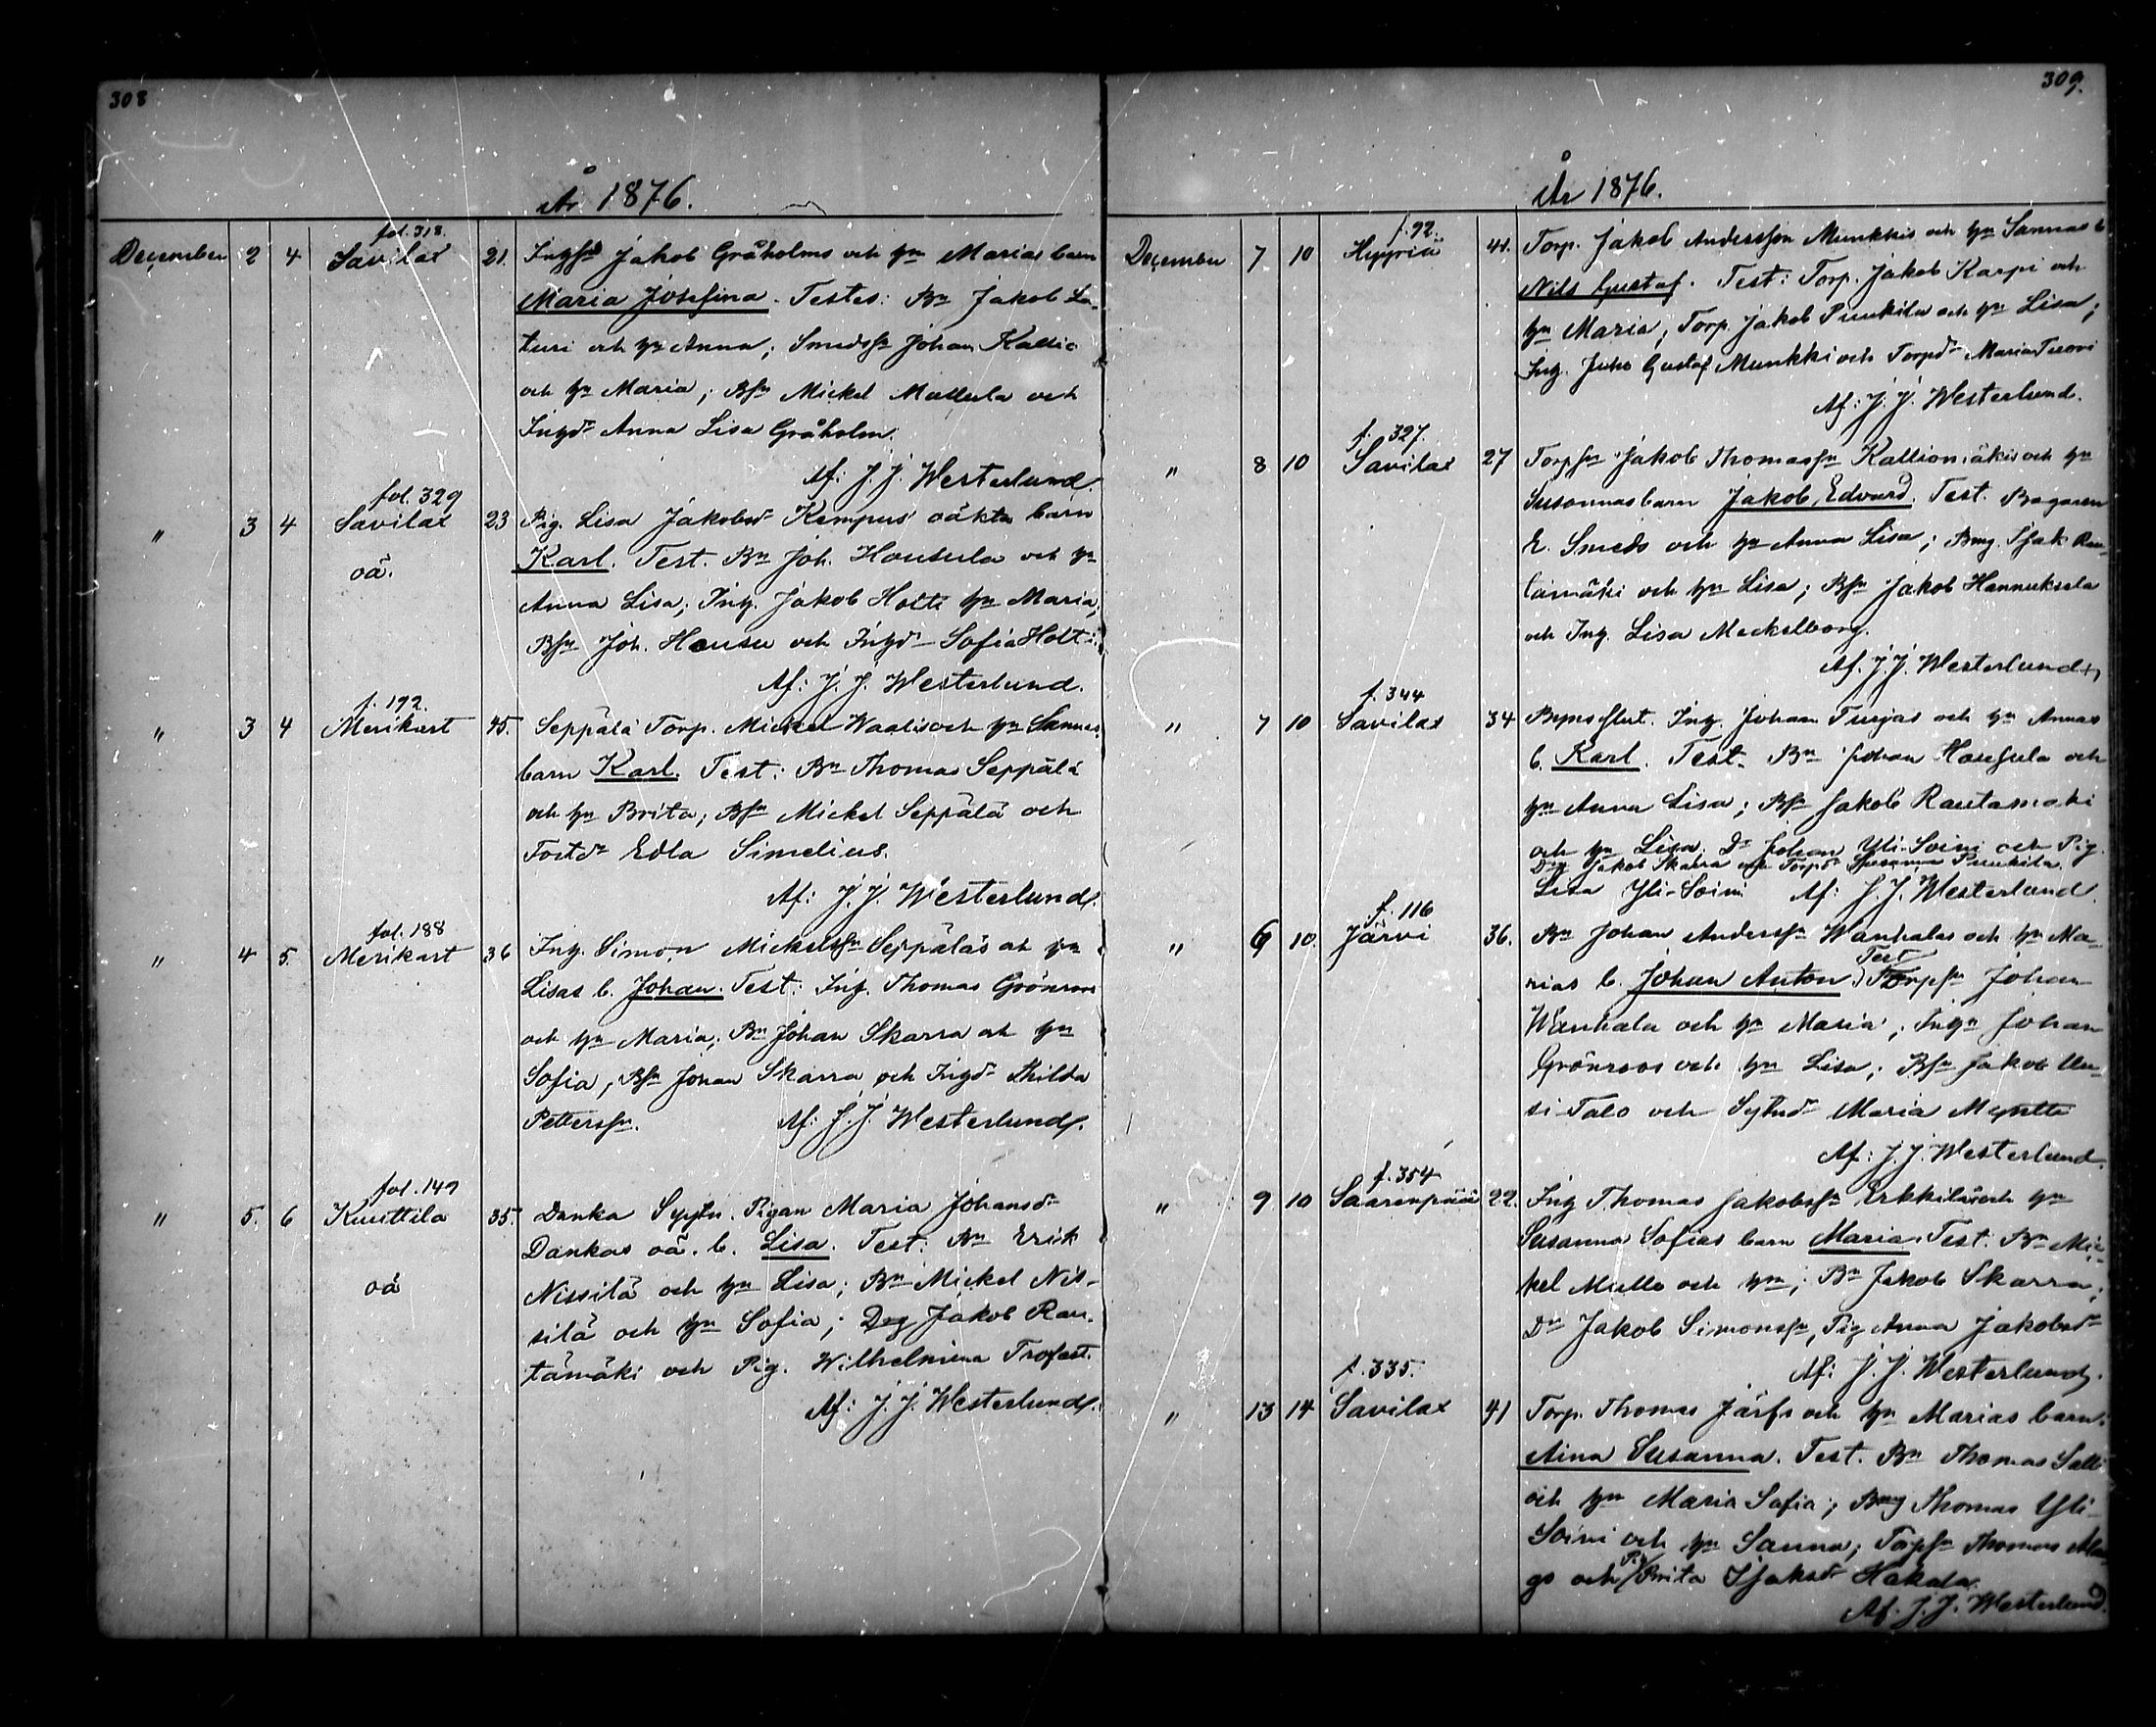 308
År 1876.
fol. 318.
December 2 4 Savilax 21. Inghsd Jakob Gråholms och hn Marias barn
Maria Josefina. Testes: Bn Jakob La-
turi och hn Anna; Smedsn Johan Kallio
och hn Maria; Bsn Mickel Mattila och
Ingdr Anna Lisa Gråholm.
Af: J. J. Westerlund.
fol. 329
" 3 4 Savilax 23 Pig. Lisa Jakobsdr Kempus oäkta barn
oä. Karl. Test. Bn Joh. Houterla och hn
Anna Lisa; Ing. Jakob Holti hn Maria;
Bsn Joh. Housu och Ingdr Sofia Holti.
Af: J. J. Westerlund.
f. 192.
" 3 4 Merikart 45. Seppälä Torp. Mickel Waalis och hn Sannas
barn Karl. Test: Bn Thomas Seppälä
och hn Brita; Bsn Mickel Seppälä och
Fostdr Edla Simelius.
Af: J. J. Westerlund.
fol. 188
" 4 5. Merikart 36 Ing. Simon Mickelssn Seppäläs och hn
Lisas b. Johan. Test: Ing. Thomas Grönroos
och hn Maria; Bn Johan Skarra och hn
Sofia; Bsn Johan Skarra och Ingdr Hilda
Petterssn. Af: J. J. Westerlund.
fol. 149
" 5. 6 Kuuttila 35. Danka Sytn. Pigan Maria Johansdr
Dankas oä. b. Lisa. Test: Bn Erik
oä Nissilä och hn Lisa; Bn Mickel Nis-
silä och hn Sofia; Dng Jakob Rau-
tamäki och Pig. Wilhelmina Trofast.
Af: J. J. Westerlund.
309.
År 1876.
f. 92.
December 7 10 Hyyriä 41. Torp. Jakob Andersson Munkkis och hn Sannas b
Nils Gustaf. Test: Torp. Jakob Karpi och
hn Maria; Torp. Jakob Punkila och hn Lisa;
Ing. Juho Gustaf Munkki och Torpdr Maria Tuori
Af: J. J. Westerlund.
f. 327.
" 8 10 Savilax 27 Torpsn Jakob Thomassn Kalliomäkis och hn
Susannas barn Jakob Edvard. Test. Bagaren
E. Smeds och hn Anna Lisa; Bmg. Isak Rau-
tamäki och hn Lisa; Bsn Jakob Hannuksela
och Ing. Lisa Meckelborg.
Af. J. J. Westerlund
f. 344
" 7 10 Savilax 34 Ing. Johan Turjas och hn Annas
b. Karl. Test. Bn Johan Housula och
hn Anna Lisa; Bsn Jakob Rautamäki
och hn Lisa. Dr Johan Yli-Soini och Pig.
Dng Jakob Skarra och Torpdr Susanna Punkila.
Lisa Yli-Soini Af: J. J. Westerlund.
f. 116
" 6 10. Järvi 36. Bn Johan Anderssn Wanhalas och hn Ma-
rias b. Johan Anton. Test Torpsn Johan
Wanhala och hn Maria; Ingn Johan
Grönroos och hn Lisa; Bsn Jakob Uu-
si-Talo och Sytndr Maria
Af: J. J. Westerlund.
f. 354
" 9 10 Saarenpää 22. Ing Thomas Jakobssn Erkkiläs och hn
Susanna Sofias barn Maria. Test. Bn Mic-
kel Mullo och hn; Bn Jakob Skarra;
Dn Jakob Simonssn, Pig Anna Jakobsdr
Af: J. J. Westerlund.
f. 335.
" 13 14 Savilax 41 Torp. Thomas Järfs och hn Marias barn
Aina Susanna. Test. Bn Thomas Salli
och hn Maria Sofia; Bmg Thomas Yli-
Soini och hn Sanna; Torpsn Thomas Ala-
go och Pig Brita Isaksdr Hakala.
Af. J. J. Westerlund.